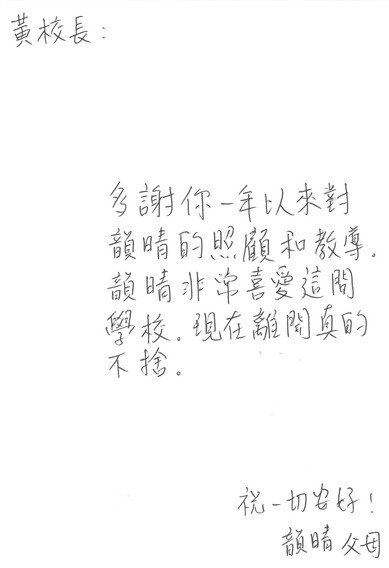 黃校長：
多謝你一年以來對
韻晴的照顧和教導。
韻晴非常喜愛這間
學校。現在離開真的
不捨。
祝一切安好！
韻晴父母